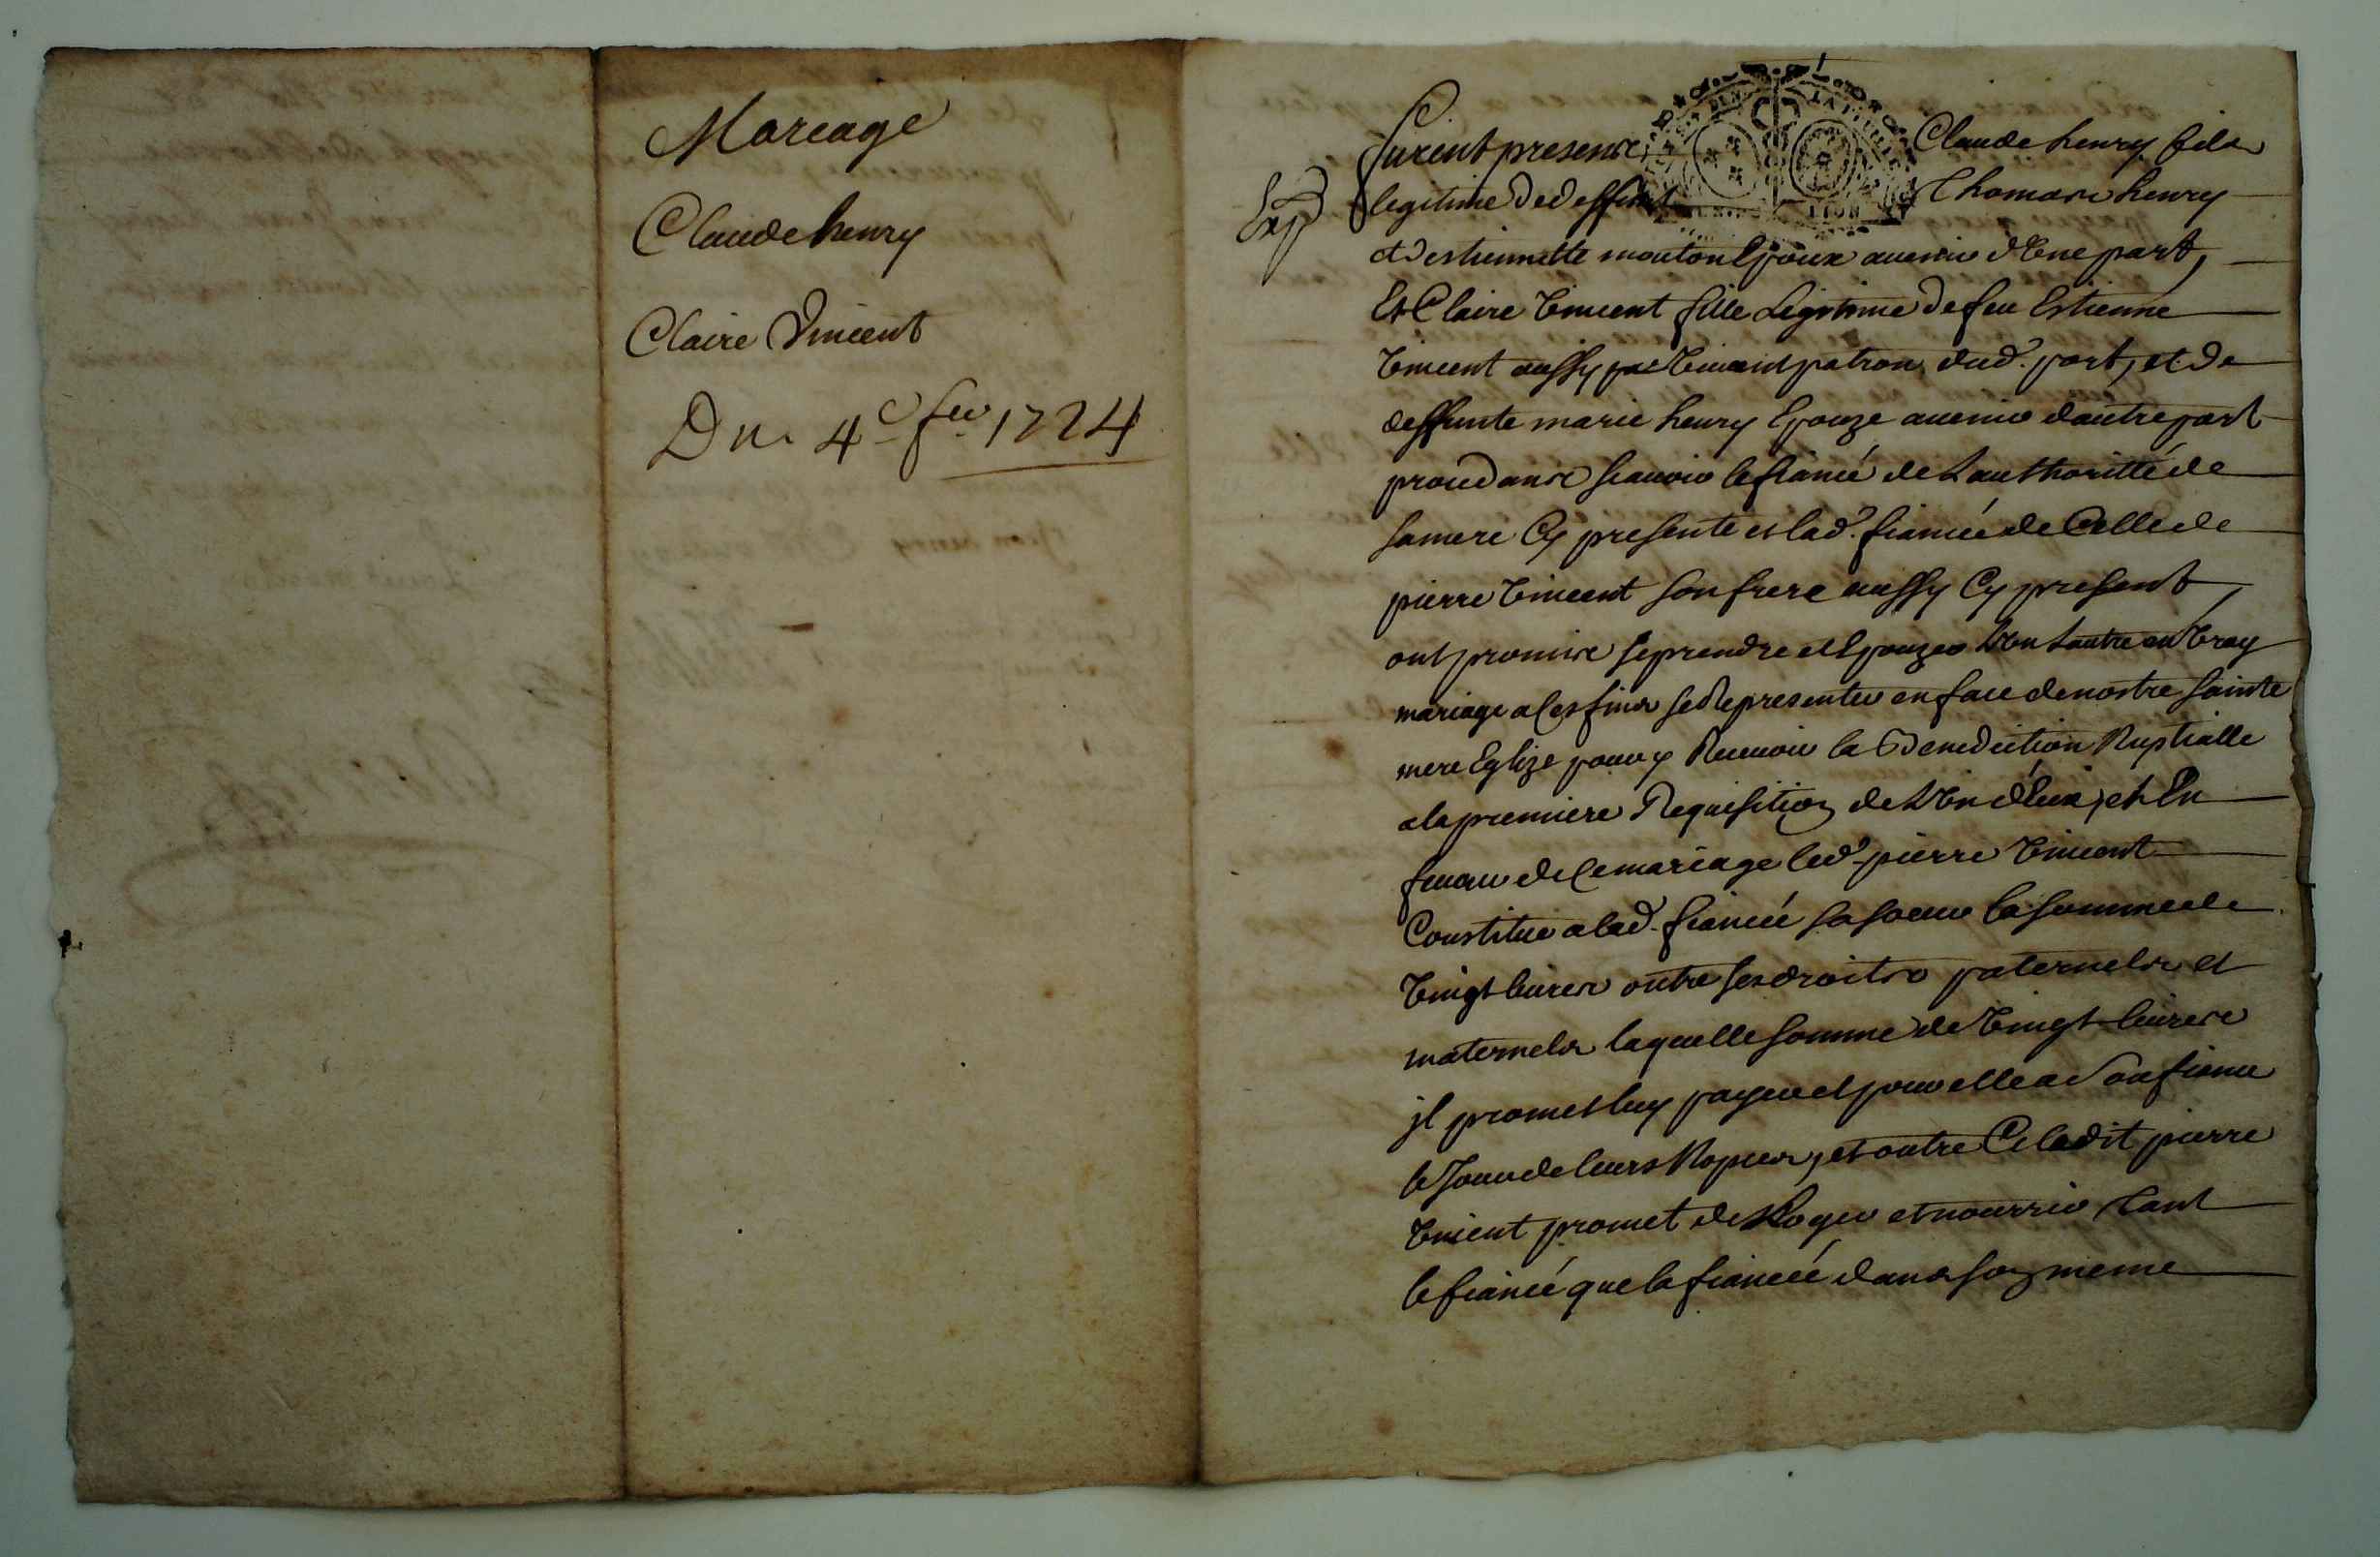 Mareage
Claude henry
Claire Vincent
Du 4e feu 1724
Exp
furent presens Claude henry fils
legitime de deffunt Thomas henry
et destiennette mouton Epoux auenir d'vne part,
Et Claire vincent fille Legitime de feu Estienne
vincent aussy vivant patron dud. port, et de
deffunte marie henry Epouze auenir dautre part
procedans scauoir le fiancé de Lauthoritté de
sa mere Cy presente et lad. fiancée de Celle de
pierre vincent son frere aussy Cy present,
ont promis se prendre et Epouzer L'vn Lautre en vray
mariage a Ces fins se Representer en face de nostre sainte
mere Eglize pour y Receuoir la Benediction Nuptialle
a la premiere Requisition de L'vn d'Eux, et En
faueur de Ce mariage led. pierre vincent
Constitue a lad. fiancée sa soeur la somme de
vingt liures outre ses droits paternels et
maternels laquelle somme de vingt liures
jl promet luy payer et pour elle a son fiancé
le Jour de leurs Nopces, et outre Ce ledit pierre
vincent promet de Loger et nourrir tant
le fiancé que la fiancée dans son meme